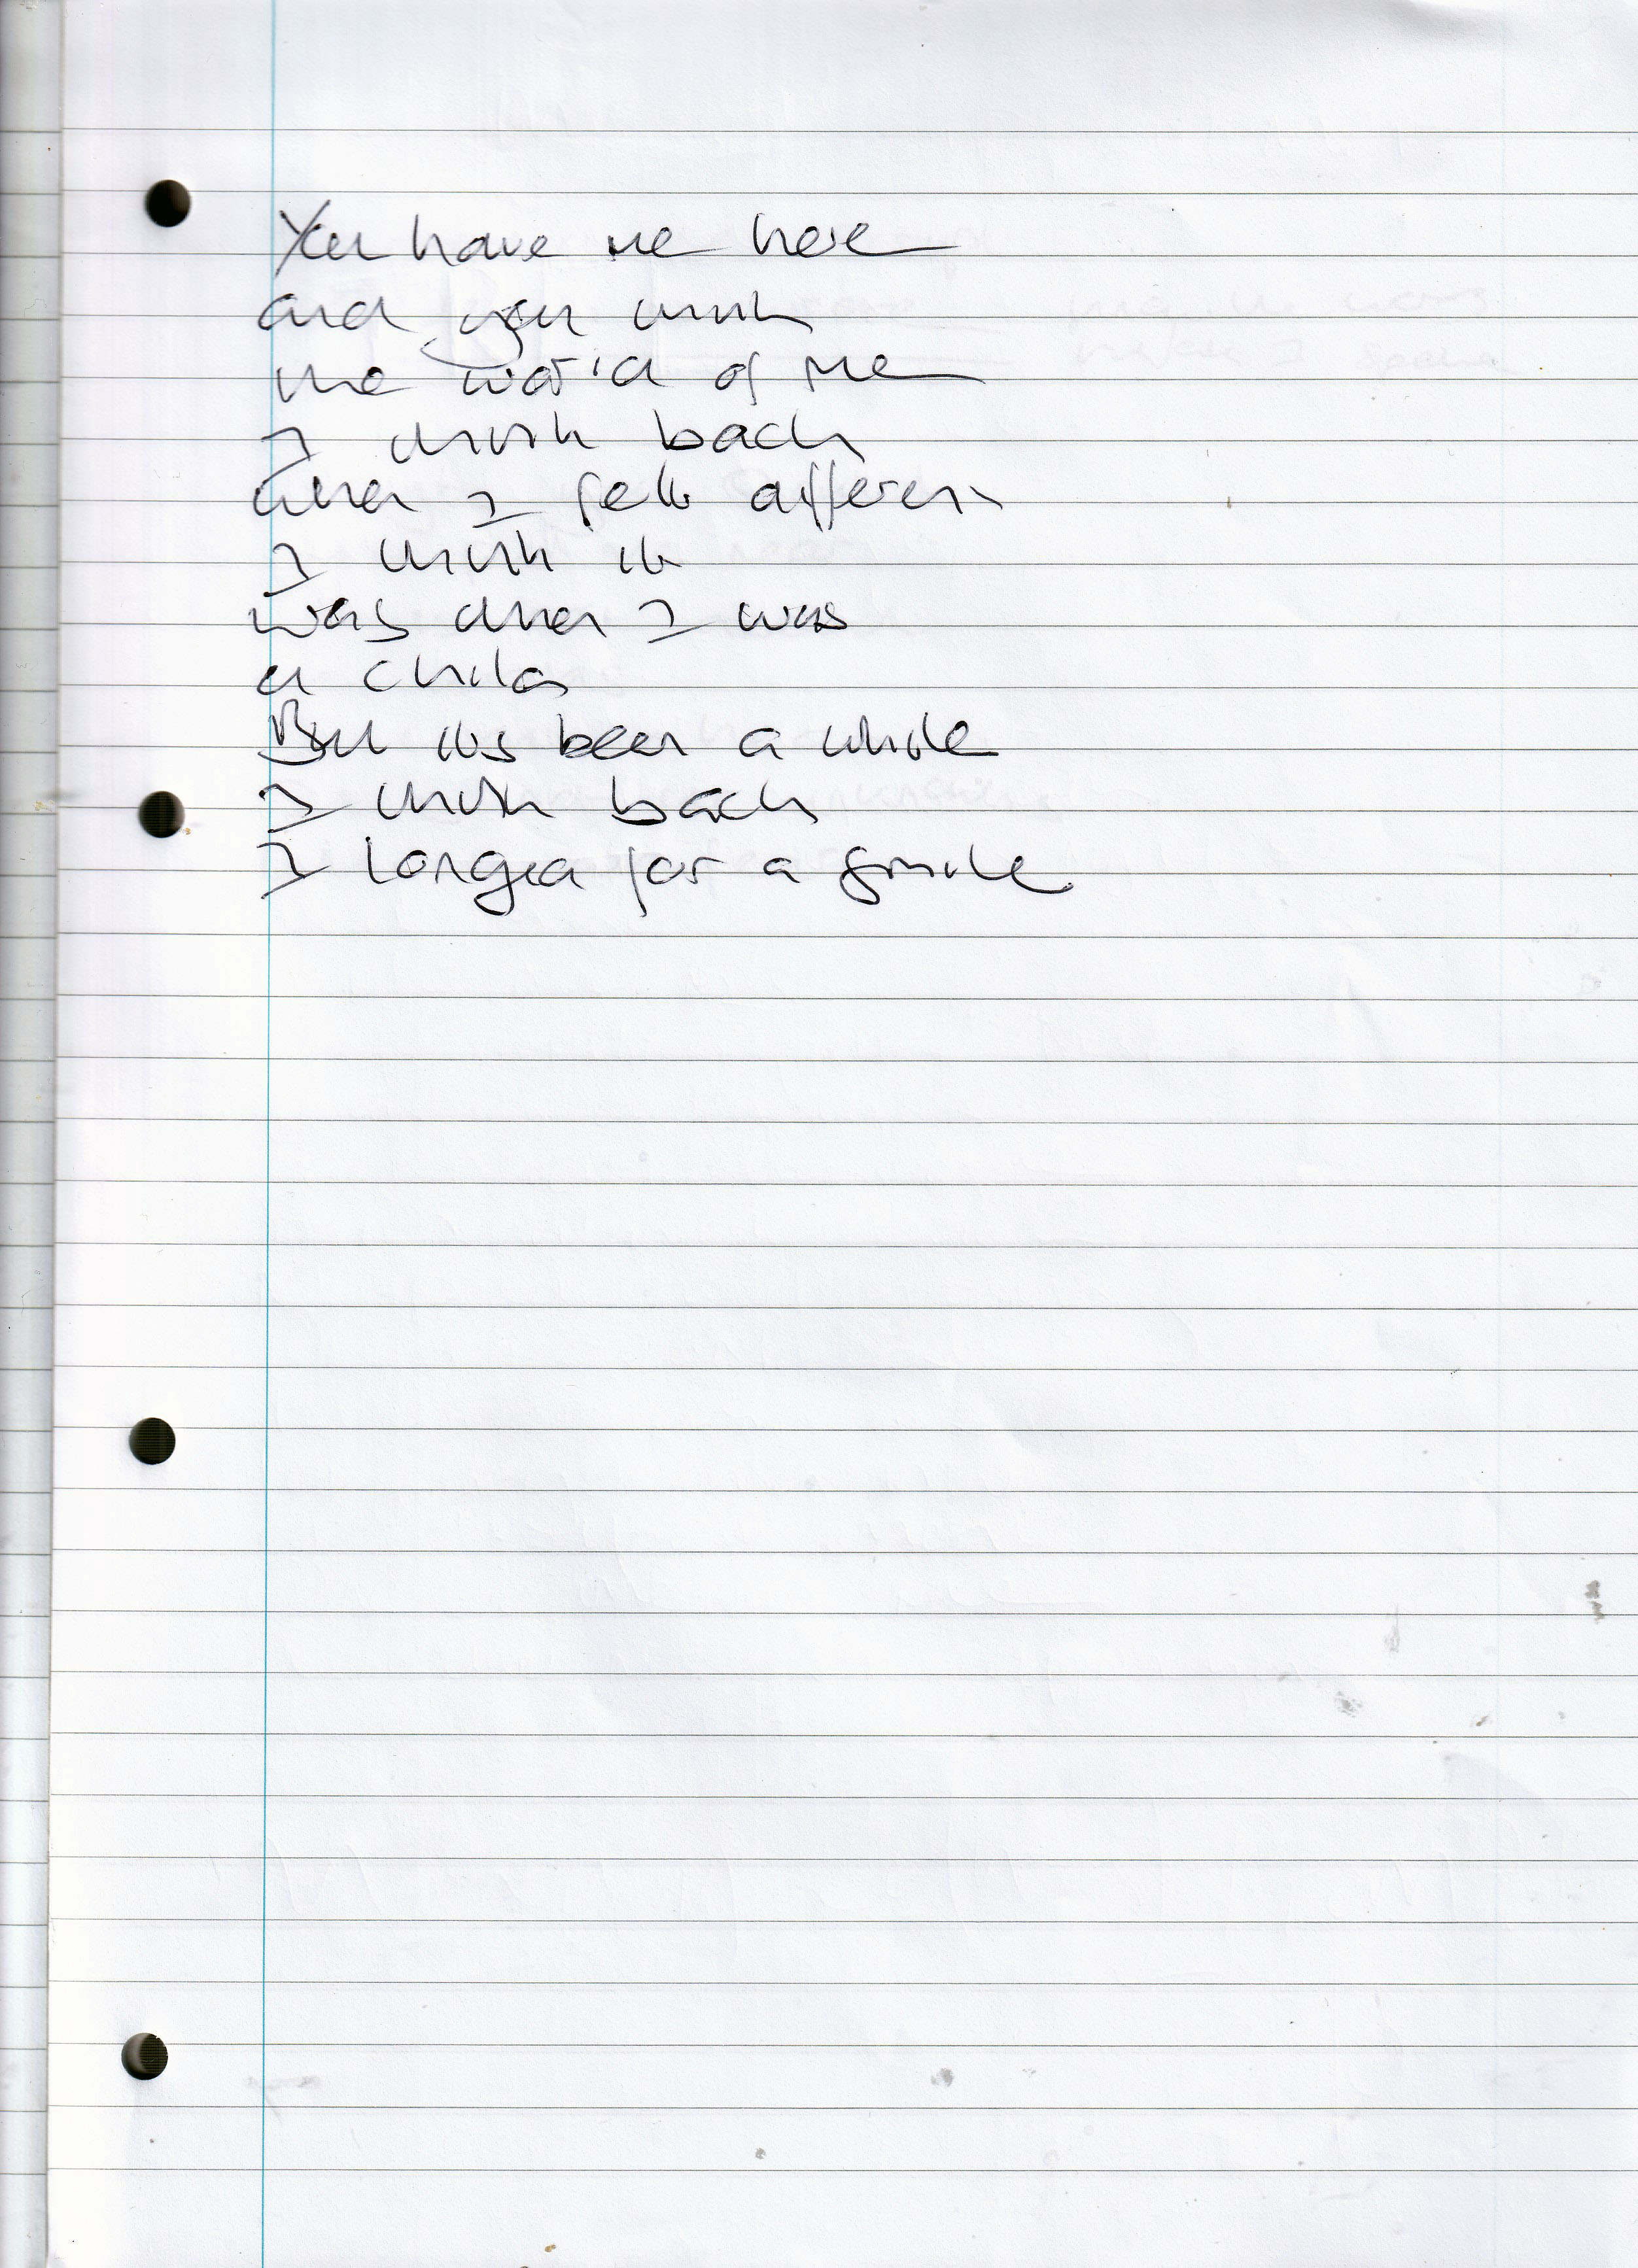 You have me here
and you think
the world of me
I think back
when I felt different
I think it
was when I was
a child
But its been a while
I think back
I longed for a smile